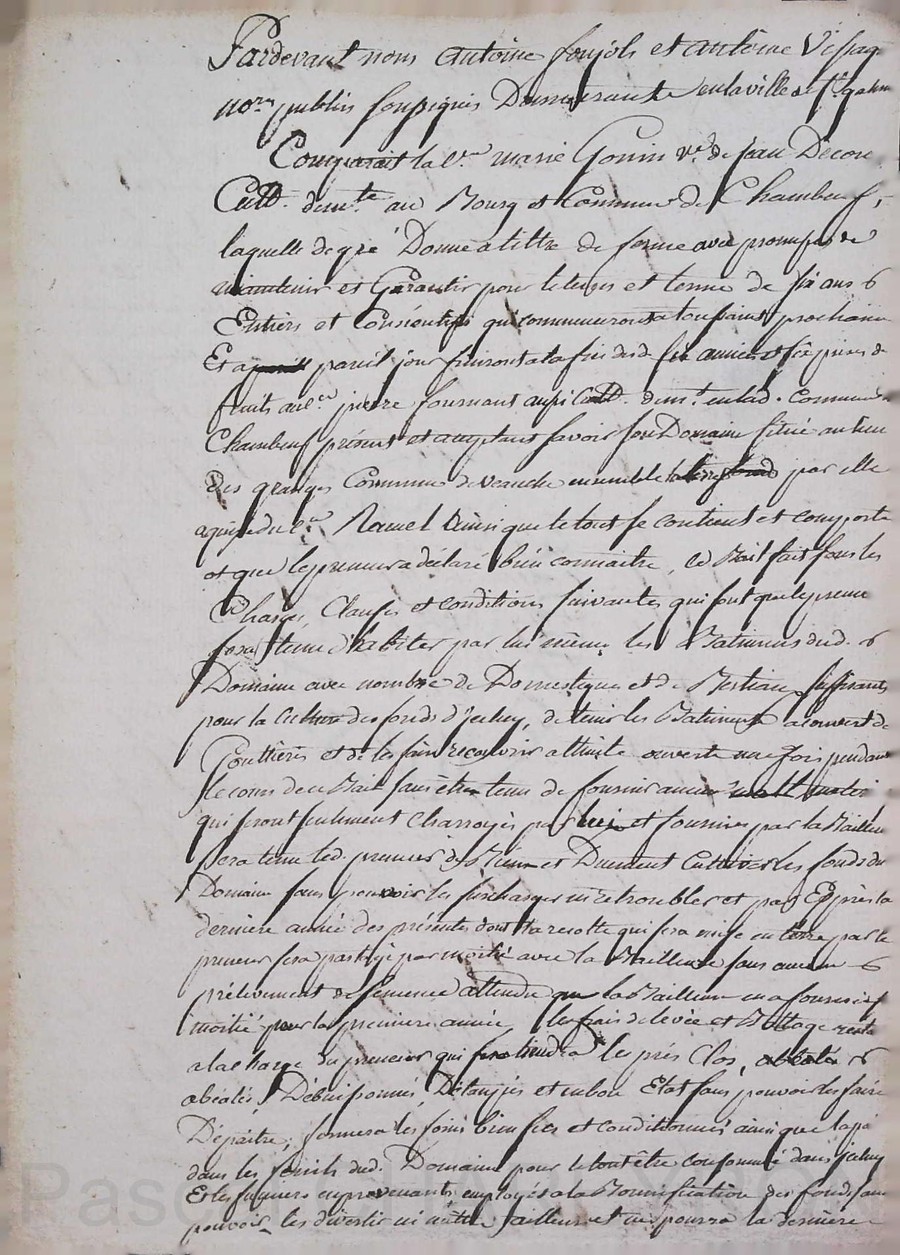 Pardevant nous Antoine foujols et antoine
no.res publics soussignés Demeurants en la ville de St. galm
Comparait la V.e marie Gonin v.e de jean Decon
Cult. dem.te au Bourg et Commune de Chambeuf,
laquelle de gré Donne a tittre de ferme avec promesse de
maintenir et Garantir pour le tems et terme de six ans
Entiers et Consécutifs qui commenceront a la toussaint prochaine
Et a pareil jour finiront a la fin dud. six années et six prises de
fruits au s.r pierre fournant aussi Cult. dem.t en lad. Commune
Chambeuf présent et acceptant savoir son Domaine situé au lieu
des granges Commune de veauche ensemble par elle
aquise du s.r Ramel Ainsi que le tout se contient et comporte
et que le preneur a déclaré bien connaitre, ce Bail fait sous les
Charges, Clauses et conditions suivantes qui sont que le preneur
sera tenu d'habiter par lui même les Batiments dud.
Domaine avec nombre de Domestiques et de Bestiaux suffisants
pour la Culture des fonds d'jceluy, de tenir les Batiments a couvert de
Gouttières et de les faire recouvrir a tuile ouverte une fois pendant
le cours de ce Bail sans être tenu de fournir aucun
qui seront seulement charroyés par lui et fournies par la Bailleuse
sera tenu led. preneur de Bien et Duement Cultiver les fonds du
Domaine sans pouvoir les surcharger ni retroubler et pas Exprès la
dernière année des présentes dont la recolte qui sera mise en terre par le
preneur sera partagé par moitié avec la Bailleuse sans aucun
prélevement de semence attendu que la Bailleuse en a fourni sa
moitié pour la premiere année, les frais de levée et Battage reste
a la charge du preneur qui les prés Clos,
abéalés, Débuissonnés, Détaupés et en bon Etat sans pouvoir les faire
Depaitre; fermera les foins bien secs et conditionnés ainsi que la pa
dans les fenils dud. Domaine pour le tout être consommé dans jceluy
Et les fumiers en provenants employés a la Bonnification des fonds sans
pouvoir les divertir ni mettre failleurs et ne pourra la derniere
Pasc